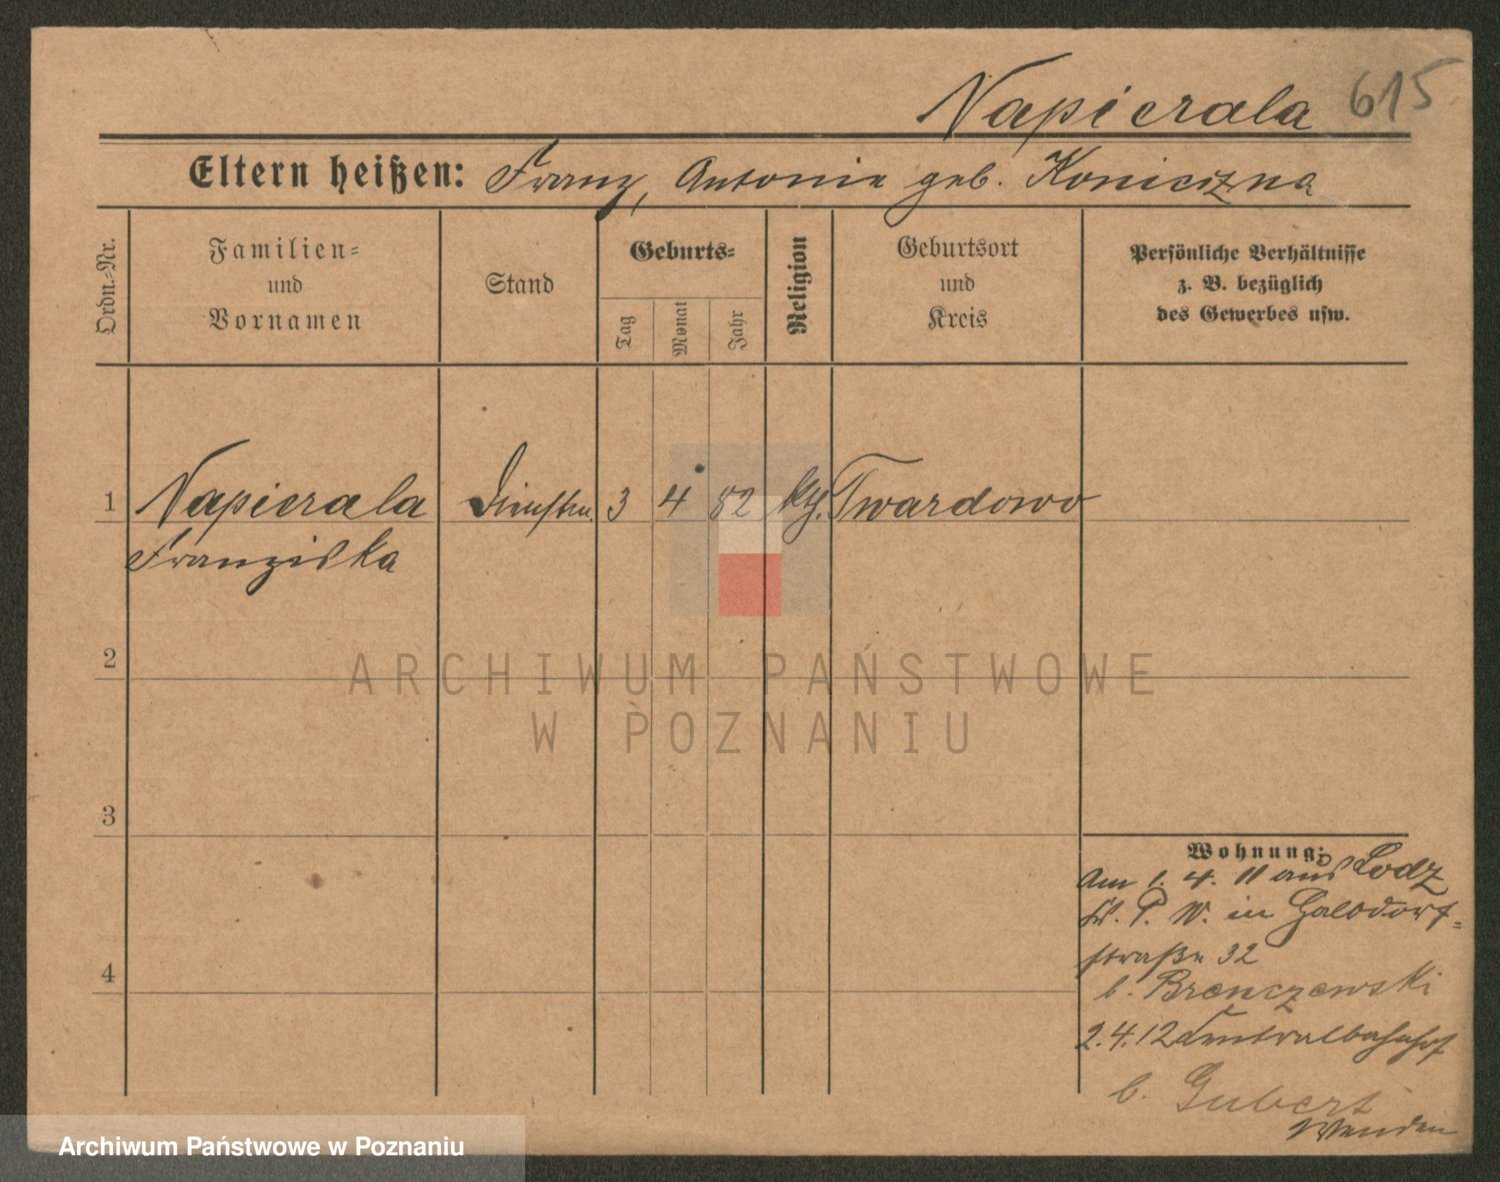 Napierala 615
Eltern heißen: Franz, Antonie geb. Koniczna
Ordn.-Nr.
Familien- und Vornamen
Stand
Geburts-
Tag
Monat
Jahr
Religion
Geburtsort und Kreis
Persönliche Verhältnisse
z. B. bezüglich
des Gewerbes usw.
1 Napierala Dienstm. 3 4 82 kth. Twardowo
Franziska
2
3
4
Wohnung:
Am 1. 4. 11 aus Lodz
P. W. in
straße 32
b. Brenczewski
2.4.12 Centralbahnhof
b. Gubert
Wenden
ARCHIWUM PAŃSTWOWE
W POZNANIU
Archiwum Państwowe w Poznaniu